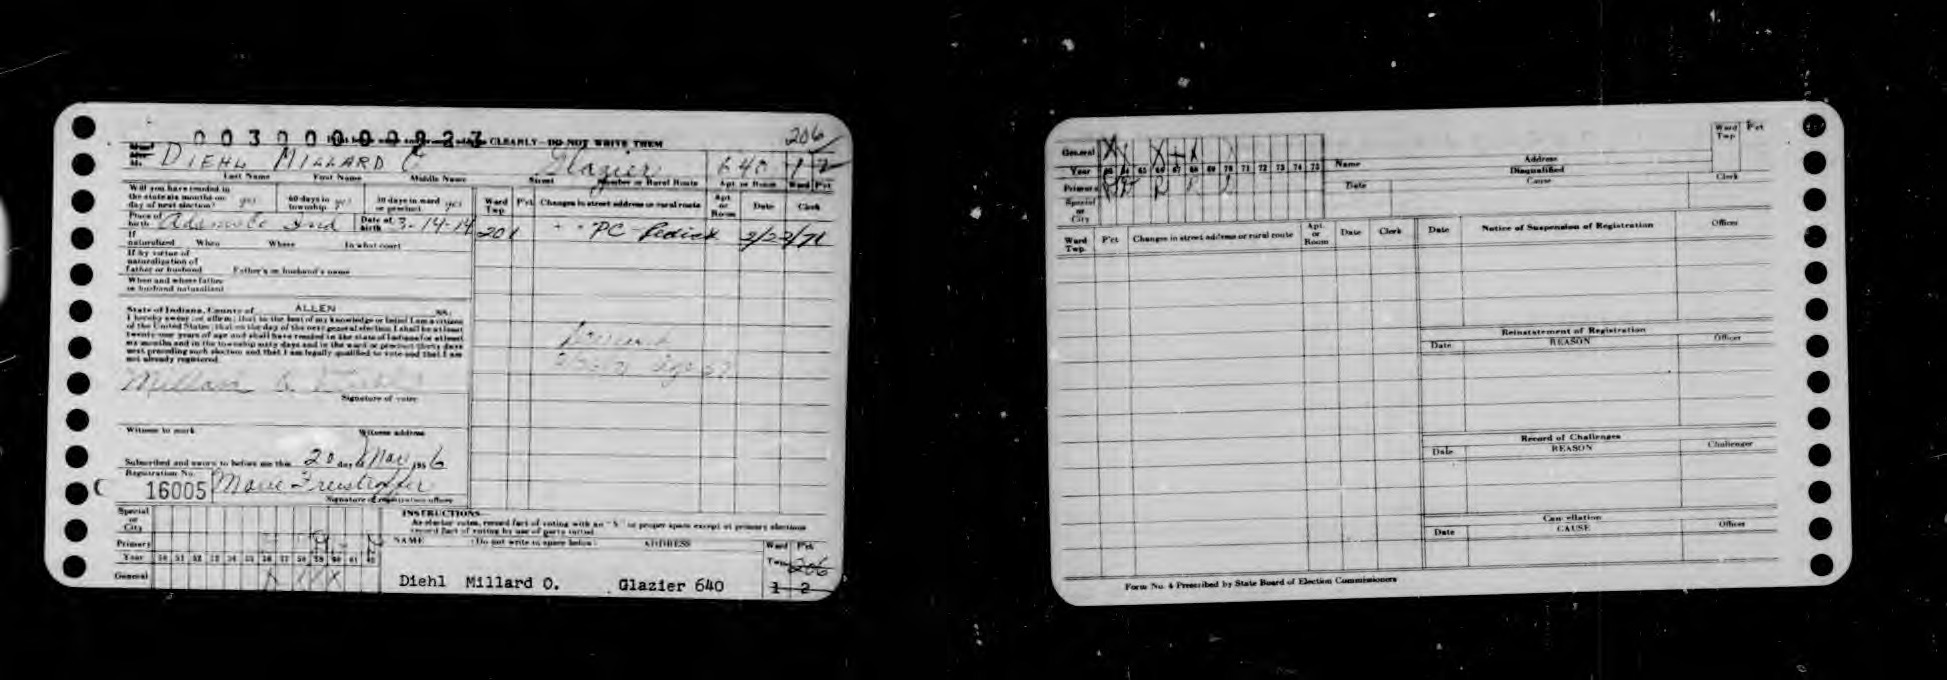 0030000000823
CLEARLY—DO NOT WRITE THEM
206
DIEHL MILLARD Glazier 640 1 2
Last Name First Name Middle Name Street Number or Rural Route Apt. or Room Ward Pct.
Will you have resided in the state six months on day of next election? yes 60 days in township yes 30 days in ward or precinct yes
Ward Twp. Pct. Changes in street address or rural route Apt. or Room Date Clerk
Place of birth Ind Date of birth 3-14-14
201 " " PC
If naturalized When Where In what court
If by virtue of naturalization of father or husband Father's or husband's name
When and where father or husband naturalized
State of Indiana, County of ALLEN SS:
I hereby swear (or affirm) that to the best of my knowledge or belief I am a citizen
of the United States; that on the day of the next general election I shall be at least
twenty-one years of age and shall have resided in the state of Indiana for at least
six months and in the township sixty days and in the ward or precinct thirty days
next preceding such election and that I am legally qualified to vote and that I am
not already registered.
Signature of voter
Witness to mark Witness address
Subscribed and sworn to before me this 20 day of Mar 1956
Registration No.
16005
Signature of registration officer
Special or City
Primary
Year 50 51 52 53 54 55 56 57 58 59 60 61 62
General
INSTRUCTIONS
As elector votes, record fact of voting with an "X" in proper space except at primary elections
record fact of voting by use of party initial
NAME (Do not write in space below) ADDRESS Ward Twp. Pct.
206
Diehl Millard O. Glazier 640 1 2
General
Year 65 66 67 68 69 70 71 72 73 74 75
Primary
Special or City
Name Address Ward Twp. Pct.
Disqualified
Date Cause Clerk
Ward Twp. P'ct Changes in street address or rural route Apt. or Room Date Clerk
Date Notice of Suspension of Registration Officer
Reinstatement of Registration
Date REASON Officer
Record of Challenges
Date REASON Challenger
Cancellation
Date CAUSE Officer
Form No. 4 Prescribed by State Board of Election Commissioners